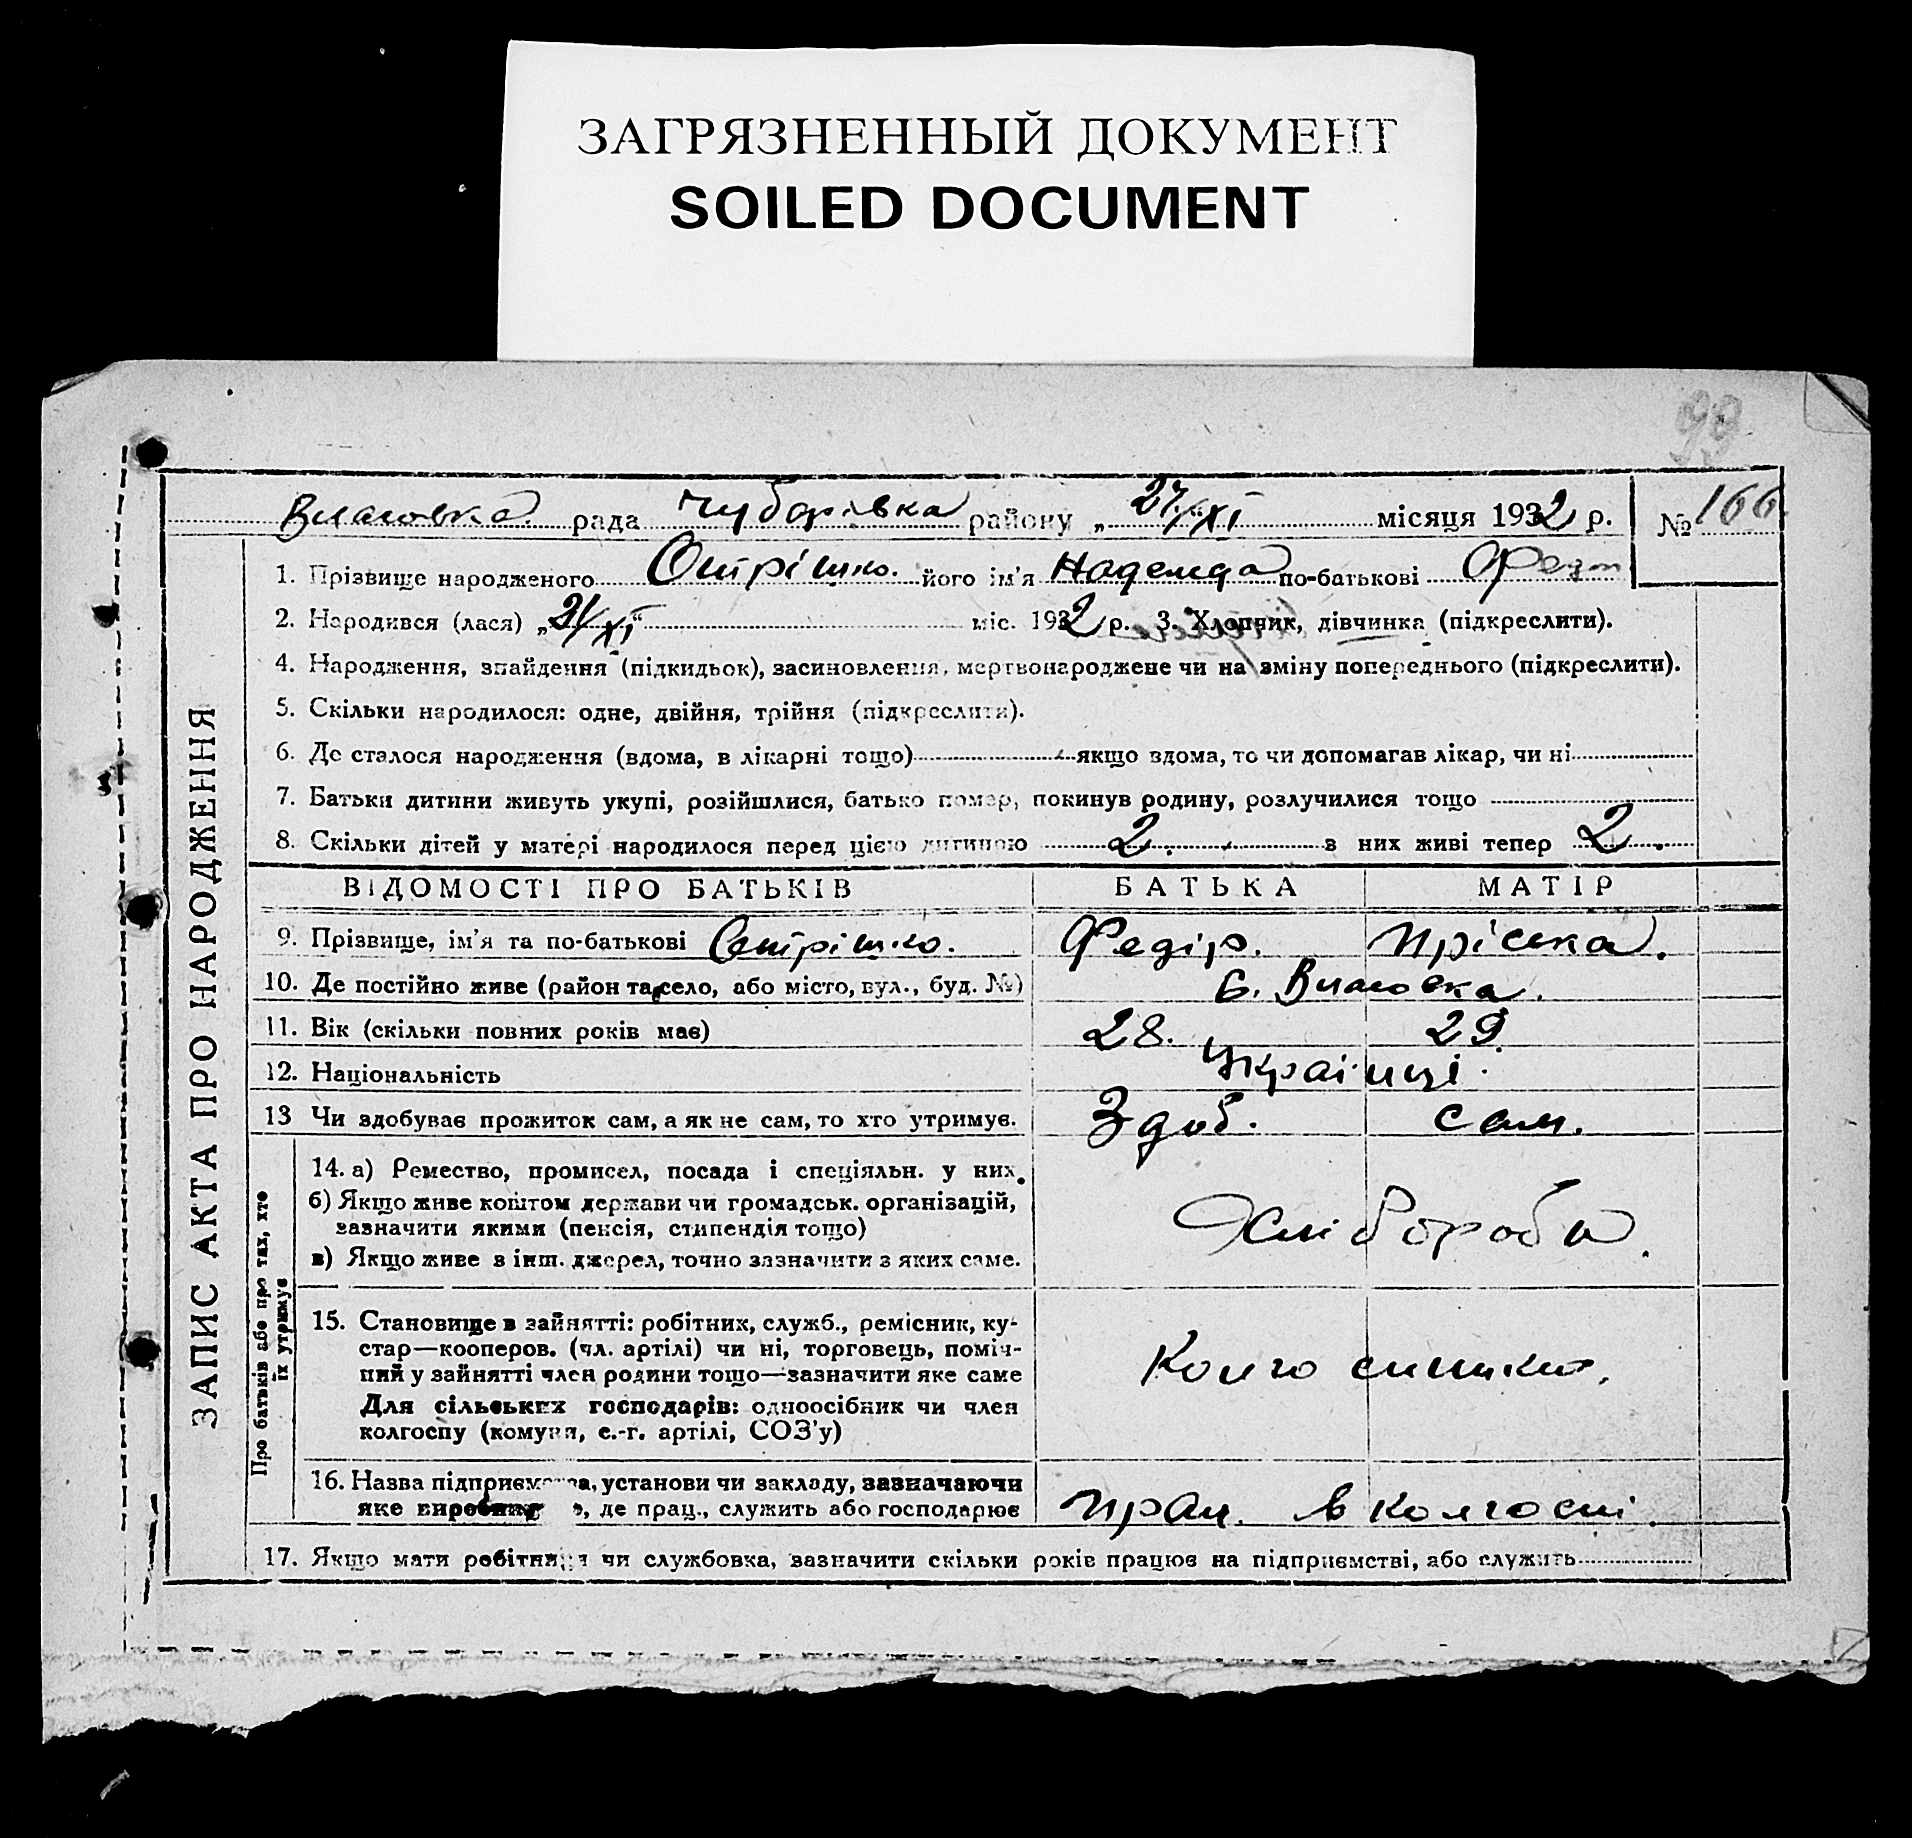 ЗАГРЯЗНЕННЫЙ ДОКУМЕНТ
SOILED DOCUMENT
99
Власовка рада Чубарівка району „27/XI“ місяця 1932 р. № 166
ЗАПИС АКТА ПРО НАРОДЖЕННЯ
1. Прізвище народженого Отрішко. його ім'я Надежда по-батькові
2. Народився (лася) „21/XI“ міс. 1932 р. 3. Хлопчик, дівчинка (підкреслити).
4. Народження, знайдення (підкидьок), засиновлення, мертвонароджене чи на зміну попереднього (підкреслити).
5. Скільки народилося: одне, двійня, трійня (підкреслити).
6. Де сталося народження (вдома, в лікарні тощо) якщо вдома, то чи допомагав лікар, чи ні
7. Батьки дитини живуть укупі, розійшлися, батько помер, покинув родину, розлучилися тощо
8. Скільки дітей у матері народилося перед цією дитиною 2. з них живі тепер 2.
ВІДОМОСТІ ПРО БАТЬКІВ БАТЬКА МАТІР
9. Прізвище, ім'я та по-батькові Отрішко. Федір. Пріська.
10. Де постійно живе (район та село, або місто, вул., буд. №) с. Власовка.
11. Вік (скільки повних років має) 28. 29.
12. Національність Українці.
13 Чи здобуває прожиток сам, а як не сам, то хто утримує. Здоб. сам.
Про батьків або про тих, хто
їх утримує
14. а) Ремество, промисел, посада і спеціяльн. у них.
б) Якщо живе коштом держави чи громадськ. організацій,
зазначити якими (пенсія, стипендія тощо)
Хлібороби.
в) Якщо живе з інш. джерел, точно зазначити з яких саме.
15. Становище в зайнятті: робітник, служб., ремісник, ку-
стар—кооперов. (чл. артілі) чи ні, торговець, поміч-
ний у зайнятті член родини тощо—зазначити яке саме
Для сільських господарів: одноосібник чи член
колгоспу (комуни, с.-г. артілі, СОЗ'у)
16. Назва підприємства, установи чи закладу, зазначаючи
яке де прац., служить або господарює Прац. в колгоспі.
17. Якщо мати робітниця чи службовка, зазначити скільки років працює на підприємстві, або служить